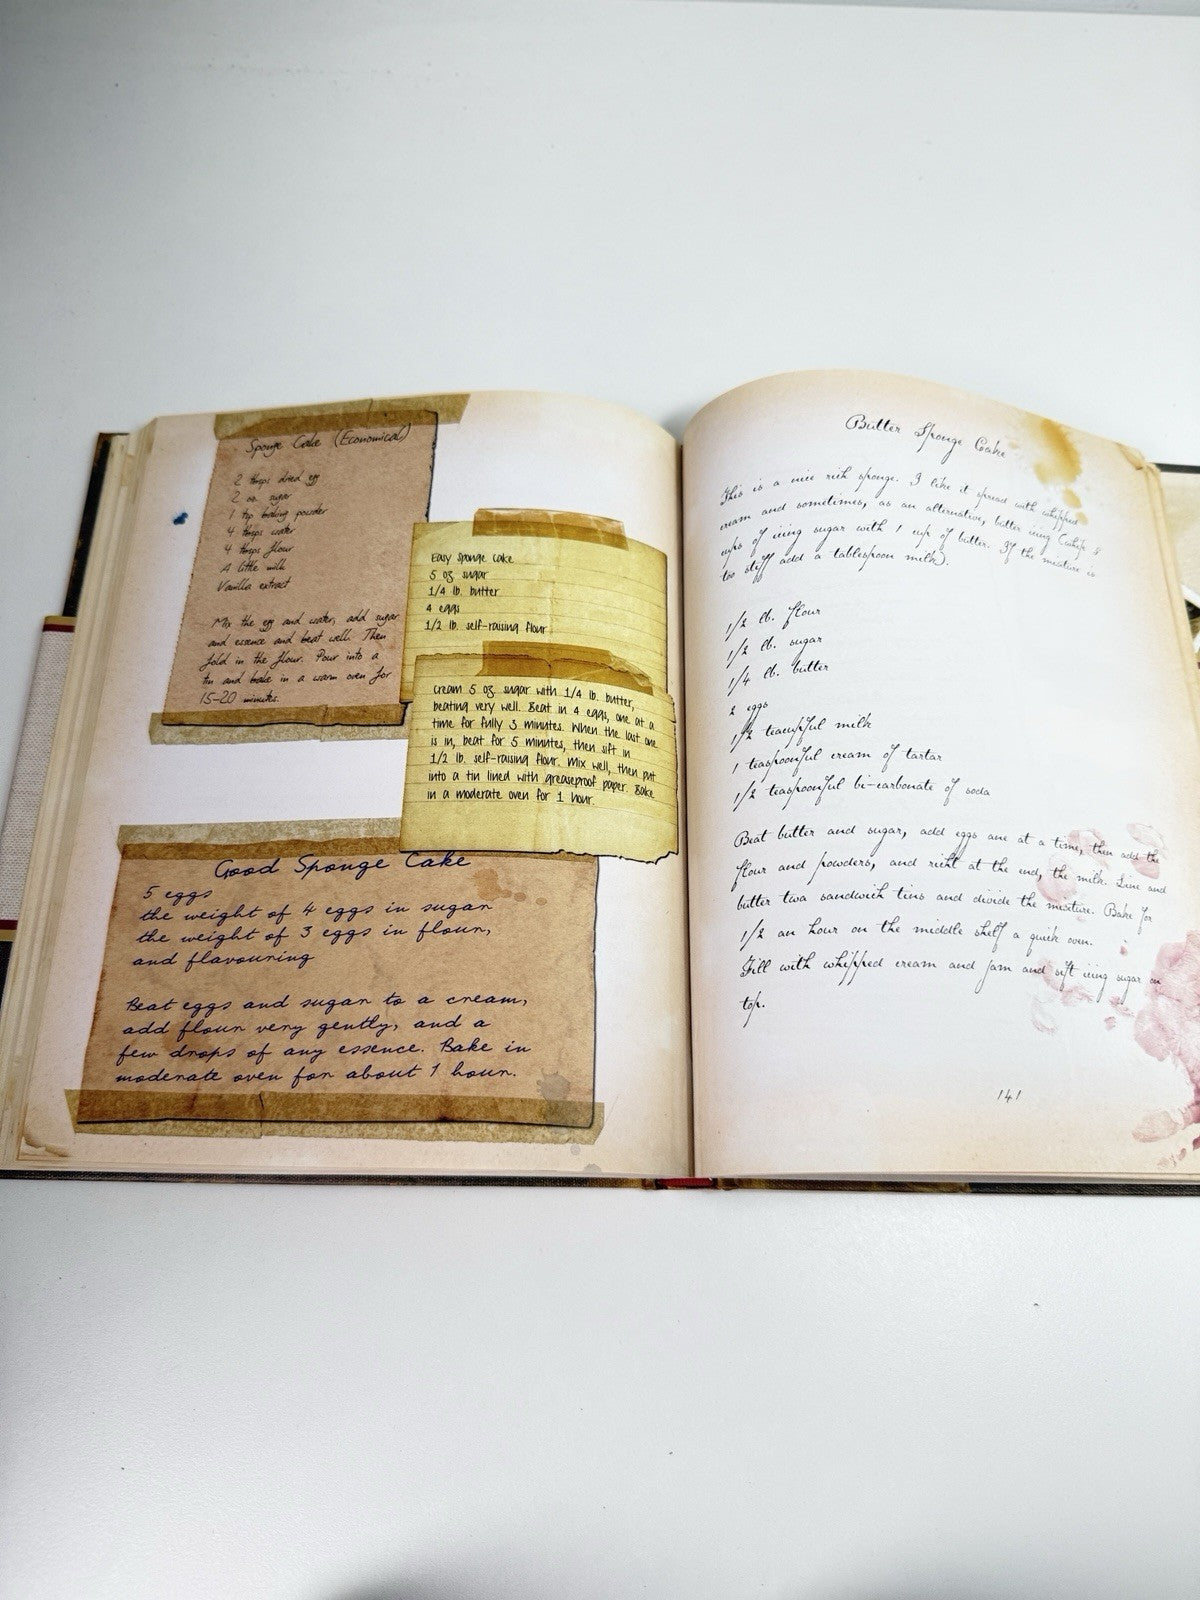 Sponge Cake (Economical)
2 tbsps dried egg
2 oz. sugar
1 tsp baking powder
4 tbsps water
4 tbsps flour
A little milk
Vanilla extract
Mix the egg and water, add sugar
and essence and beat well. Then
fold in the flour. Pour into a
tin and bake in a warm oven for
15-20 minutes.
Easy Sponge Cake
5 oz sugar
1/4 lb. butter
4 eggs
1/2 lb. self-raising flour
Cream 5 oz. sugar with 1/4 lb. butter,
beating very well. Beat in 4 eggs, one at a
time for fully 3 minutes. When the last one
is in, beat for 5 minutes, then sift in
1/2 lb. self-raising flour. Mix well, then put
into a tin lined with greaseproof paper. Bake
in a moderate oven for 1 hour.
Good Sponge Cake
5 eggs
the weight of 4 eggs in sugar
the weight of 3 eggs in flour,
and flavouring
Beat eggs and sugar to a cream,
add flour very gently, and a
few drops of any essence. Bake in
moderate oven for about 1 hour.
Butter Sponge Cake
This is a nice rich sponge. I like it spread with whipped
cream and sometimes, as an alternative, butter icing (whip
cups of icing sugar with 1 cup of butter. If the mixture is
too stiff add a tablespoon milk).
1/2 lb. flour
1/2 lb. sugar
1/4 lb. butter
2 eggs
1/2 teacupful milk
1 teaspoonful cream of tartar
1/2 teaspoonful bi-carbonate of soda
Beat butter and sugar, add eggs one at a time, then add the
flour and powders, and right at the end, the milk. Line and
butter two sandwich tins and divide the mixture. Bake for
1/2 an hour on the middle shelf a quick oven.
Fill with whipped cream and jam and sift icing sugar on
top.
141